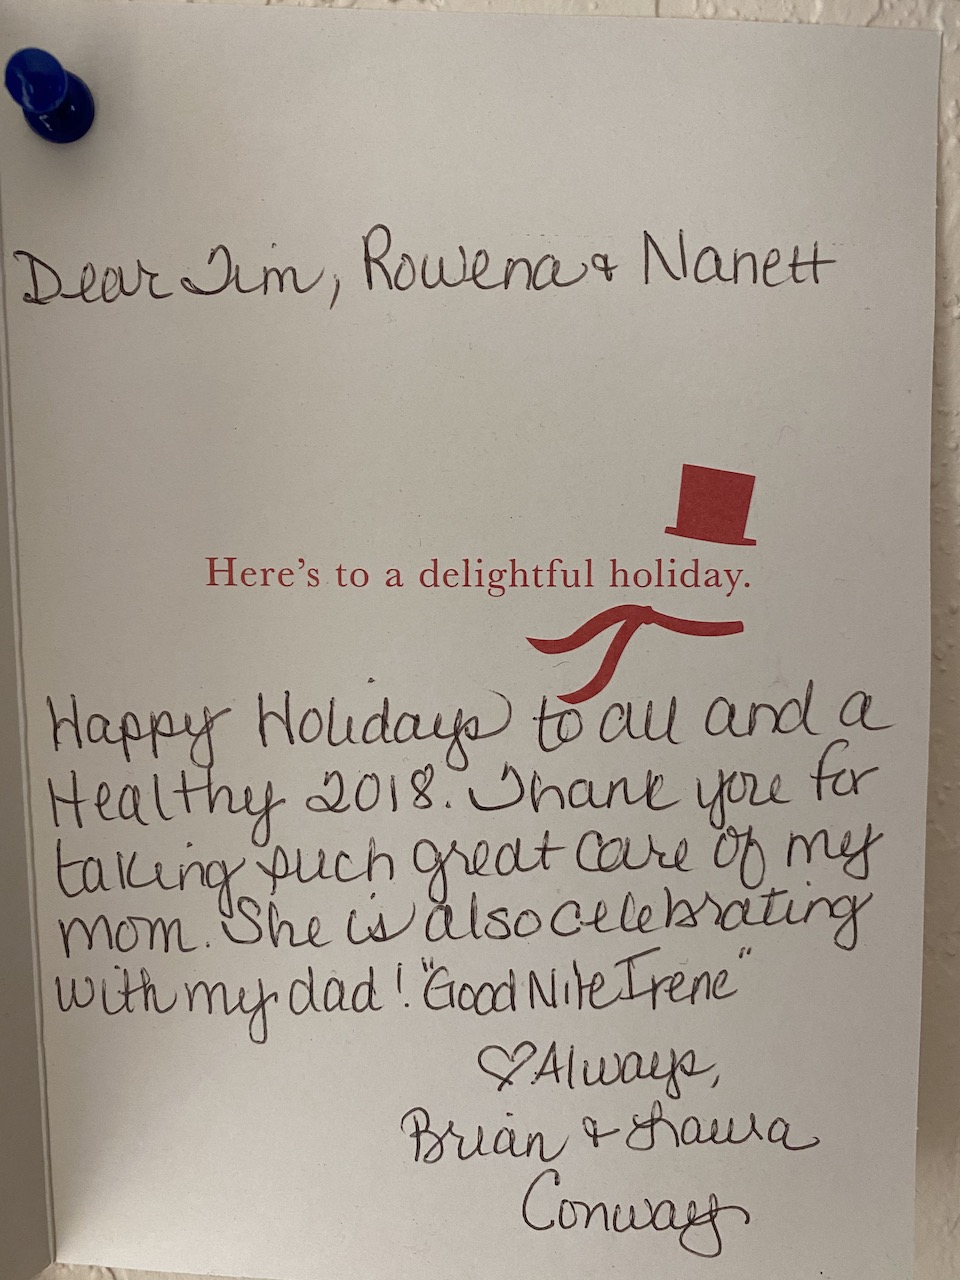 Dear Jim, Rowena & Nanett
Here's to a delightful holiday.
Happy Holidays to all and a
Healthy 2018. Thank you for
taking such great care of my
mom. She is also celebrating
with my dad! "Good Nite Irene"
♡Always,
Brian & Laura
Conway